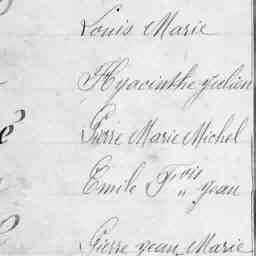 Louis Marie
Hyacinthe julian
é
Pierre Marie Michel
Emile Frois
" jean
Pierre jean Marie